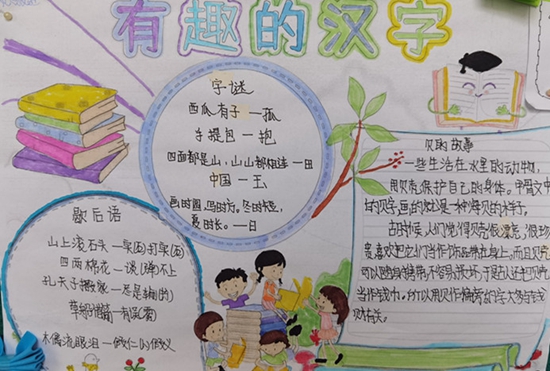 有趣的汉字
字谜
西瓜有子一孤
手提包一抱
四面都是山，山山都相连一田
中国一玉
画时圆，写时方。冬时短，
夏时长。一日
歇后语
山上滚石头一实(石)打实(石)
四两棉花一谈(弹)不上
孔夫子搬家一尽是输(书)
木偶流眼泪一假仁(人)假义
贝的故事
一些生活在水里的动物，
用贝壳保护自己的身体。甲骨文中
的贝字，画的就是一种海贝的样子。
古时候，人们觉得贝壳很漂亮，很珍
贵，喜欢把它们当作饰品戴在身上，而且贝壳
可以随身携带，不容易损坏，于是古人还把贝壳
当作钱币。所以用贝作偏旁的字大多与钱
财有关。